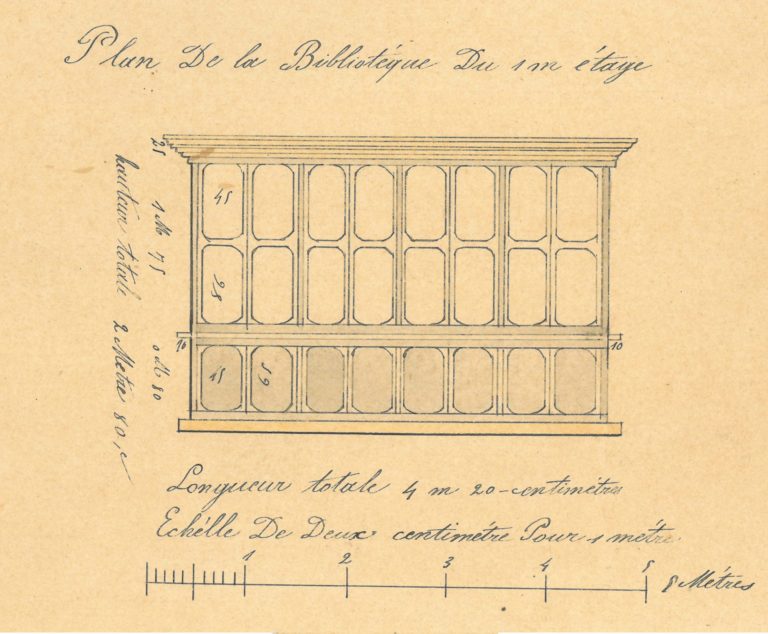 Plan De la Bibliotéque Du 1 m étage
25
1 M 75
0 M 80
hauteur totale 2 Metre 80, c
45
28
10
10
45
59
Longueur totale 4 m 20-centimétres
Echélle De Deux centimétre Pour 1 métre
1 2 3 4 5 Métres